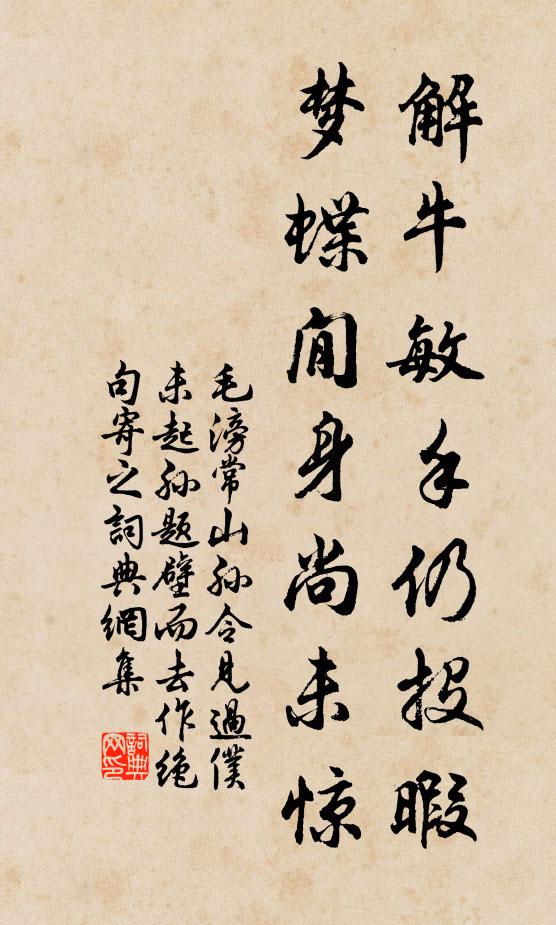 解牛敏手仍投暇
梦蝶閒身尚未惊
毛滂常山孙令见過僕
未起孙题壁而去作绝
句寄之詞典網集
詞典网印